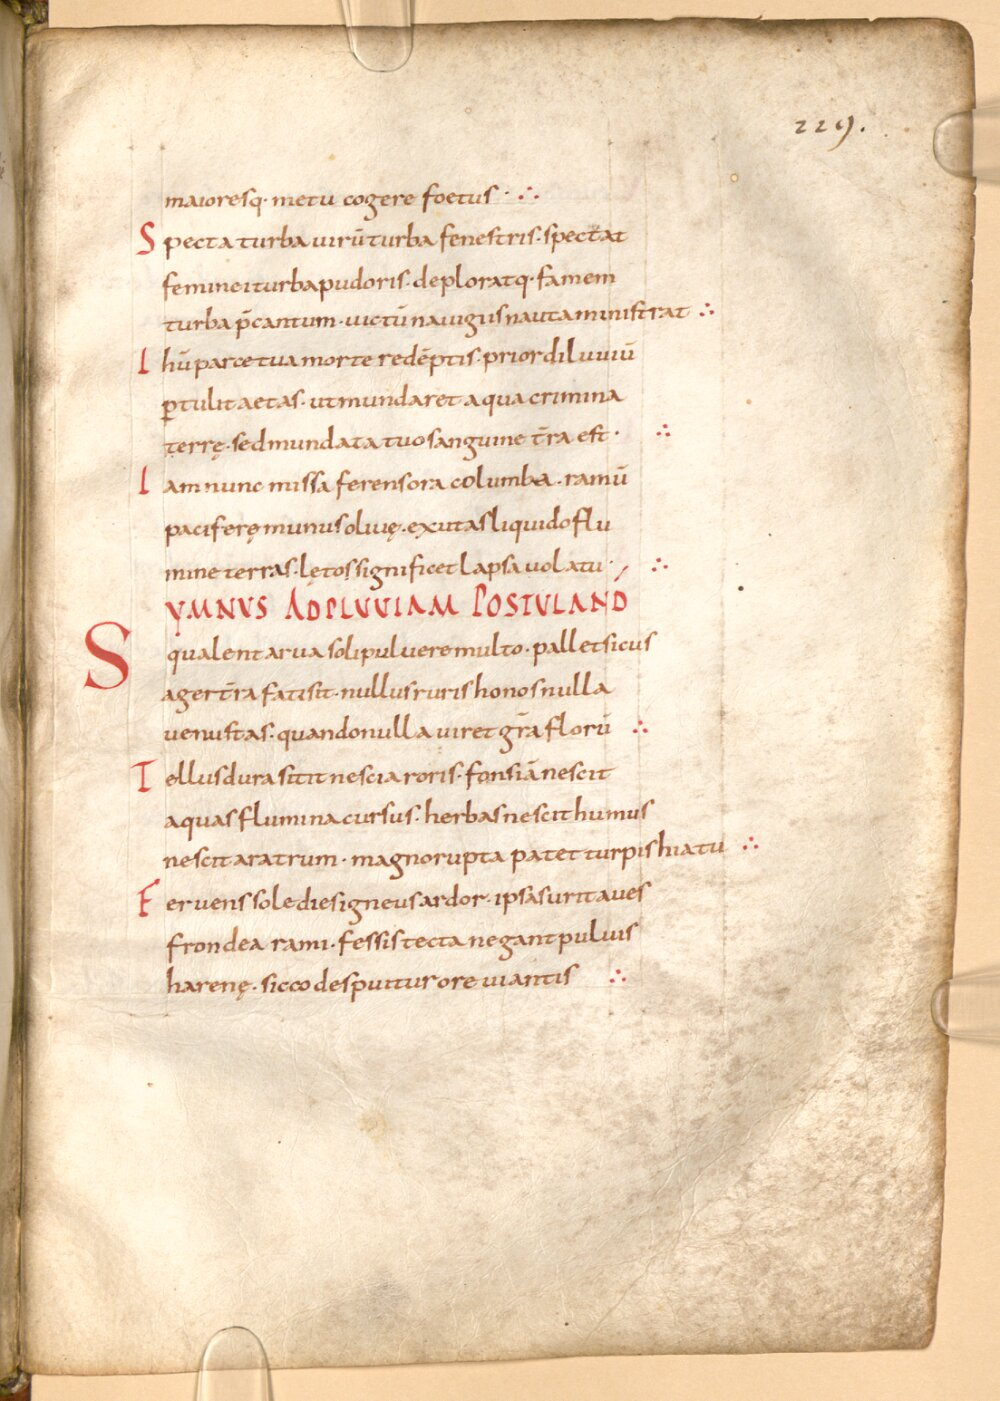 229.
maioresq· metu cogere foetus· ∴
Specta turba uirū turba fenestris· spectat
feminei turba pudoris· deploratq· famem
turba p̄cantum· uictū nauigus nauta ministrat ∴
Ihū parce tua morte redēptis· prior diluuiū
ꝑtulit aetas· ut mundaret aqua crimina
terrę· sed mundata tuo sanguine t̄ra est· ∴
Iam nunc missa ferens ora columba· ramū
paciferę munus oliuę· exutas liquido flu
mine terras· lętos significet lapsa uolatu· ∴
YMNUS AD PLUUIAM POSTULAND
Squalent arua soli puluere multo· pallet siccus
ager t̄ra fatiscit· nullus ruris honos nulla
uenustas· quando nulla uiret gr̄a florū ∴
Tellus dura sitit nescia roris· fons iā nescit
aquas flumina cursus· herbas nescit humus
nescit aratrum· magno rupta patet turpis hiatu ∴
Feruens sole dies igneus ardor· ipsas urit aues
frondea rami· fessis tecta negant puluis
harenę· sicco despuitur ore uiantis ∴